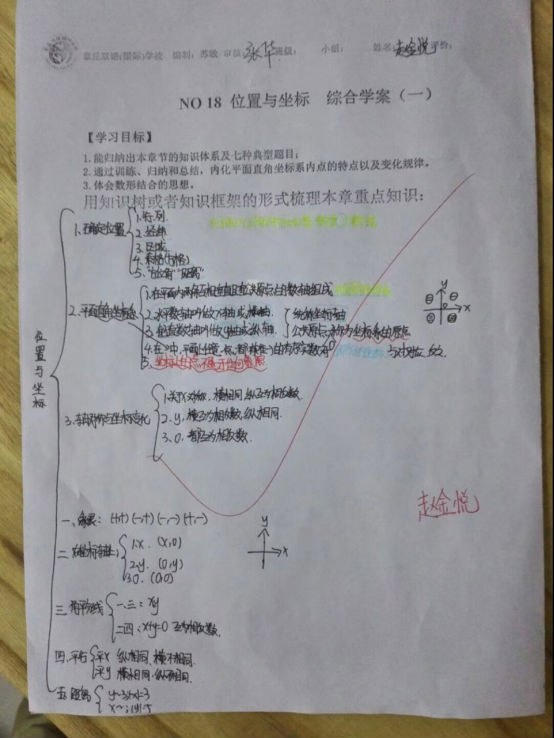 章丘双语(国际)学校 编制：苏敏 审核：张华 班级： 小组： 姓名：赵金悦 评价：
NO 18 位置与坐标 综合学案（一）
【学习目标】
1.能归纳出本章节的知识体系及七种典型题目；
2.通过训练、归纳和总结，内化平面直角坐标系内点的特点以及变化规律。
3.体会数形结合的思想。
用知识树或者知识框架的形式梳理本章重点知识：
位置与坐标
1.确定位置
1.行,列
2.经纬
3.区域
5."方位角""距离"
2.平面直角坐标系
1.在平面内两条互相垂直且有公共原点的数轴组成
2.水平数轴叫做x轴或横轴.
3.铅直数轴叫做y轴或纵轴.
统称坐标轴
公共原点O称为坐标系的原点
y
x
3.轴对称与坐标变化
1.关于x对称，横相同，纵互为相反数.
2.y，横互为相反数，纵相同.
3.O，都互为相反数.
赵金悦
一、象限：(+,+) (-,+) (-,-) (+,-)
二、坐标轴上
1.x. (x,0)
2.y. (0,y)
3.O. (0,0)
y
x
三、角平分线
一、三：x=y
二四：x+y=0 互为相反数.
四、平行
平x 纵相同，横不相同.
平y 横相同，纵不相同.
五、距离